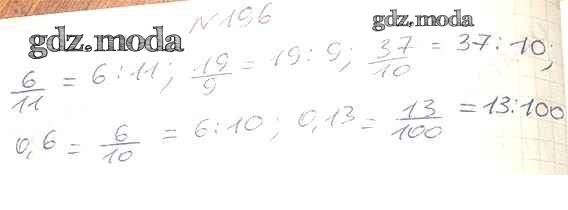 N196
gdz.moda gdz.moda
6/11 = 6:11; 19/9 = 19:9; 37/10 = 37:10;
0,6 = 6/10 = 6:10; 0,13 = 13/100 = 13:100